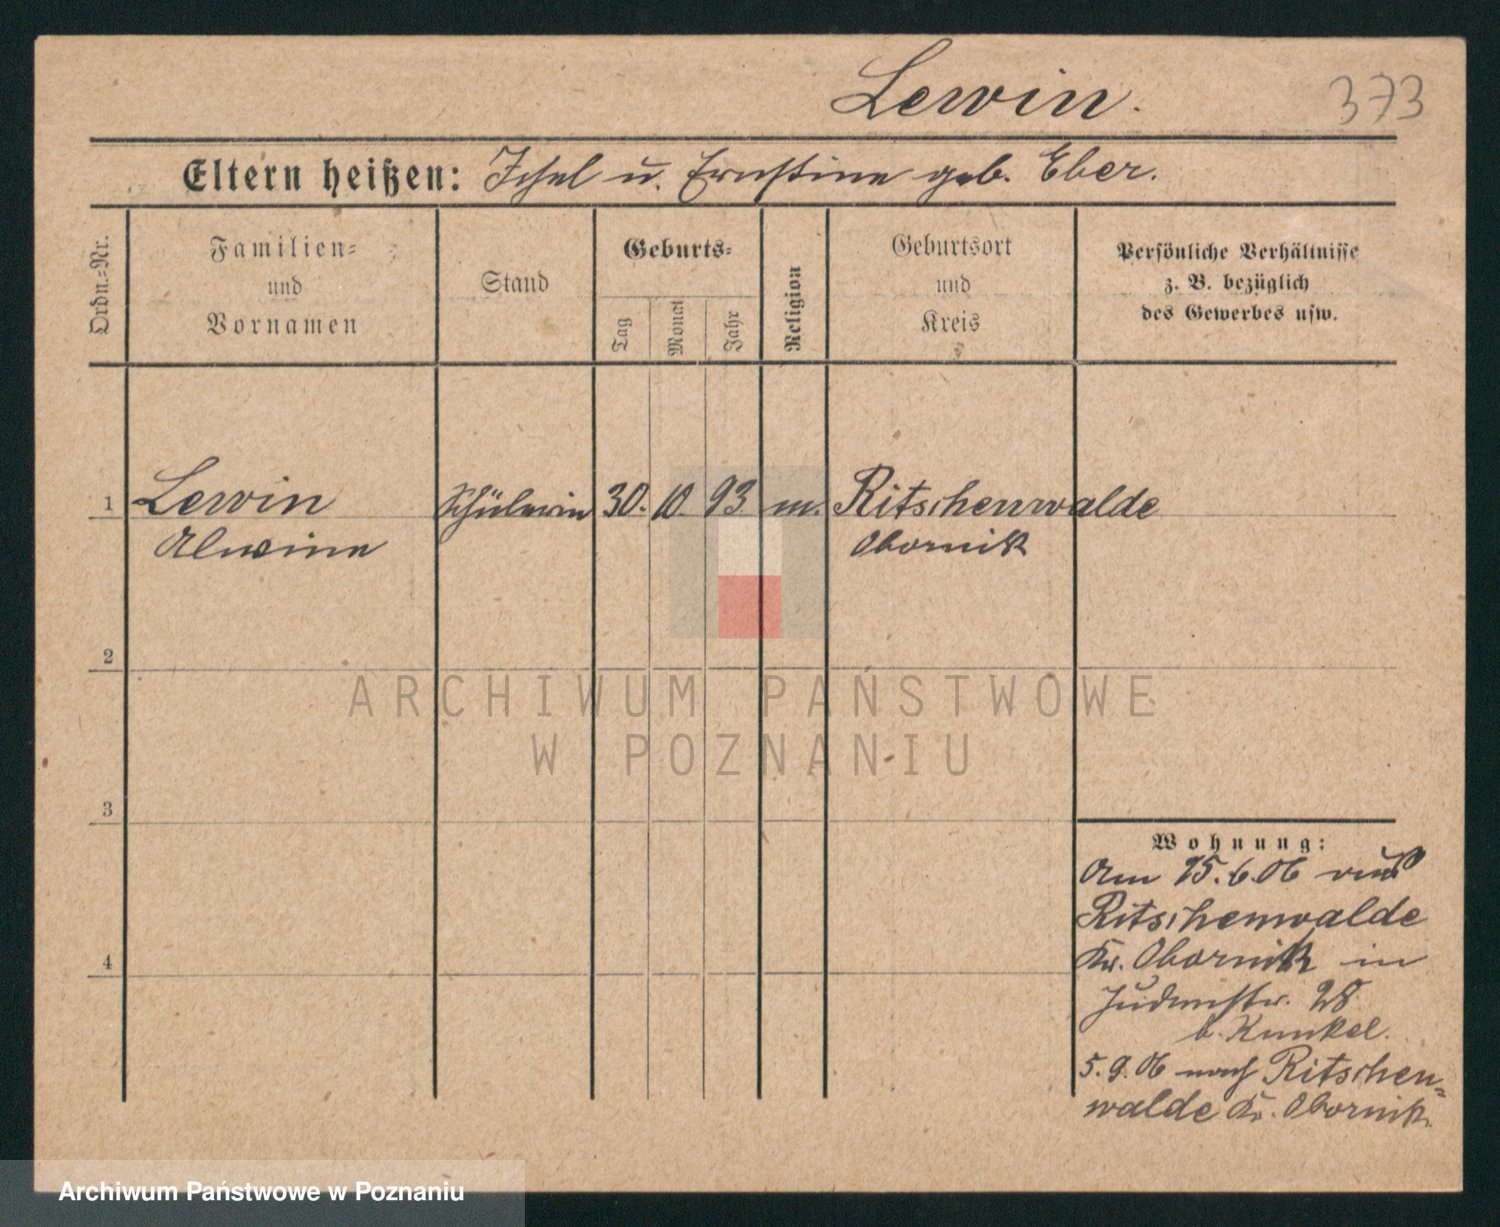 Lewin.
373
Eltern heißen: Ichel u. Ernstine geb. Eber.
Ordn.-Nr.
Familien-
und
Vornamen
Stand
Geburts-
Tag
Monat
Jahr
Religion
Geburtsort
und
Kreis
Persönliche Verhältnisse
z. B. bezüglich
des Gewerbes usw.
1 Lewin Schülerin 30. 10. 93 m. Ritschenwalde
Alwine Obornik
2
ARCHIWUM PAŃSTWOWE
W POZNANIU
3
Wohnung:
Am 25.6.06 aus
Ritschenwalde
Kr. Obornik in
4
Judenstr. 28
b. Kunkel.
5.9.06 nach Ritschen-
walde Kr. Obornik.
Archiwum Państwowe w Poznaniu